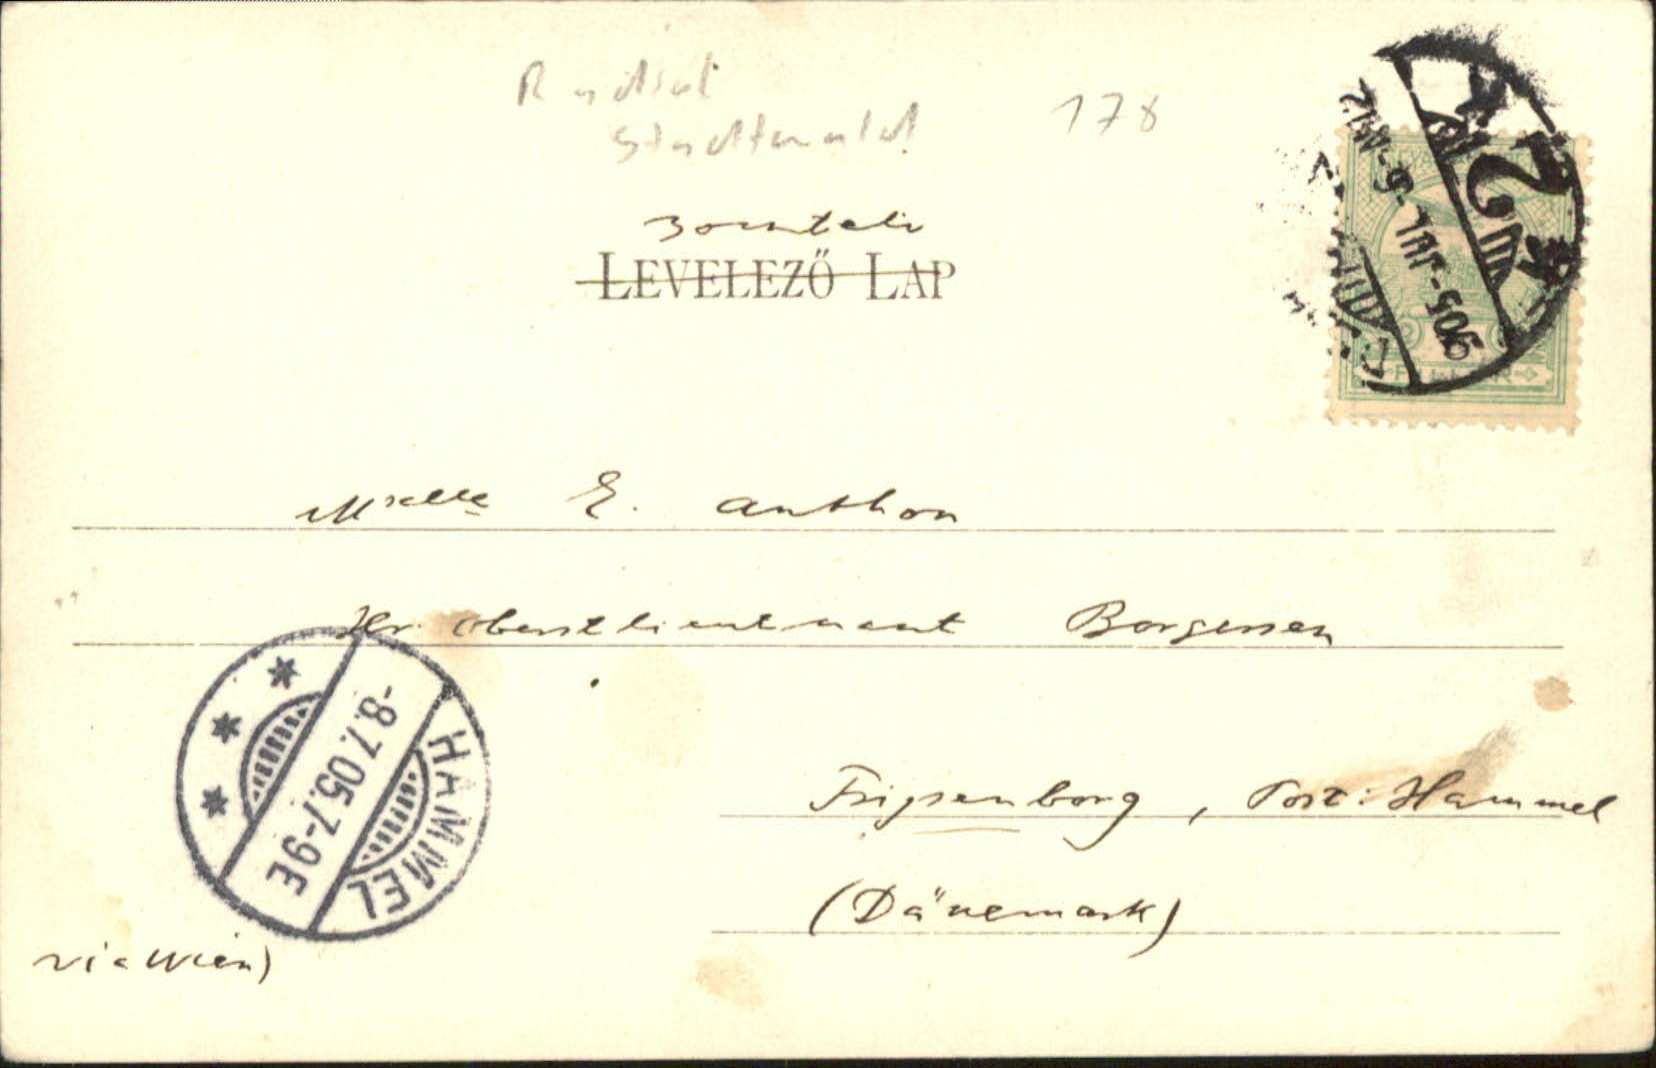 Stadtwald
178
LEVELEZŐ LAP
905 JUL -5
Mselle E. Anthon
Hr. Oberstlieutenant Borgessen
-8.7.05.7-9E
HAMMEL
Frijsenborg, Post: Hammel
(Dänemark)
via Wien)